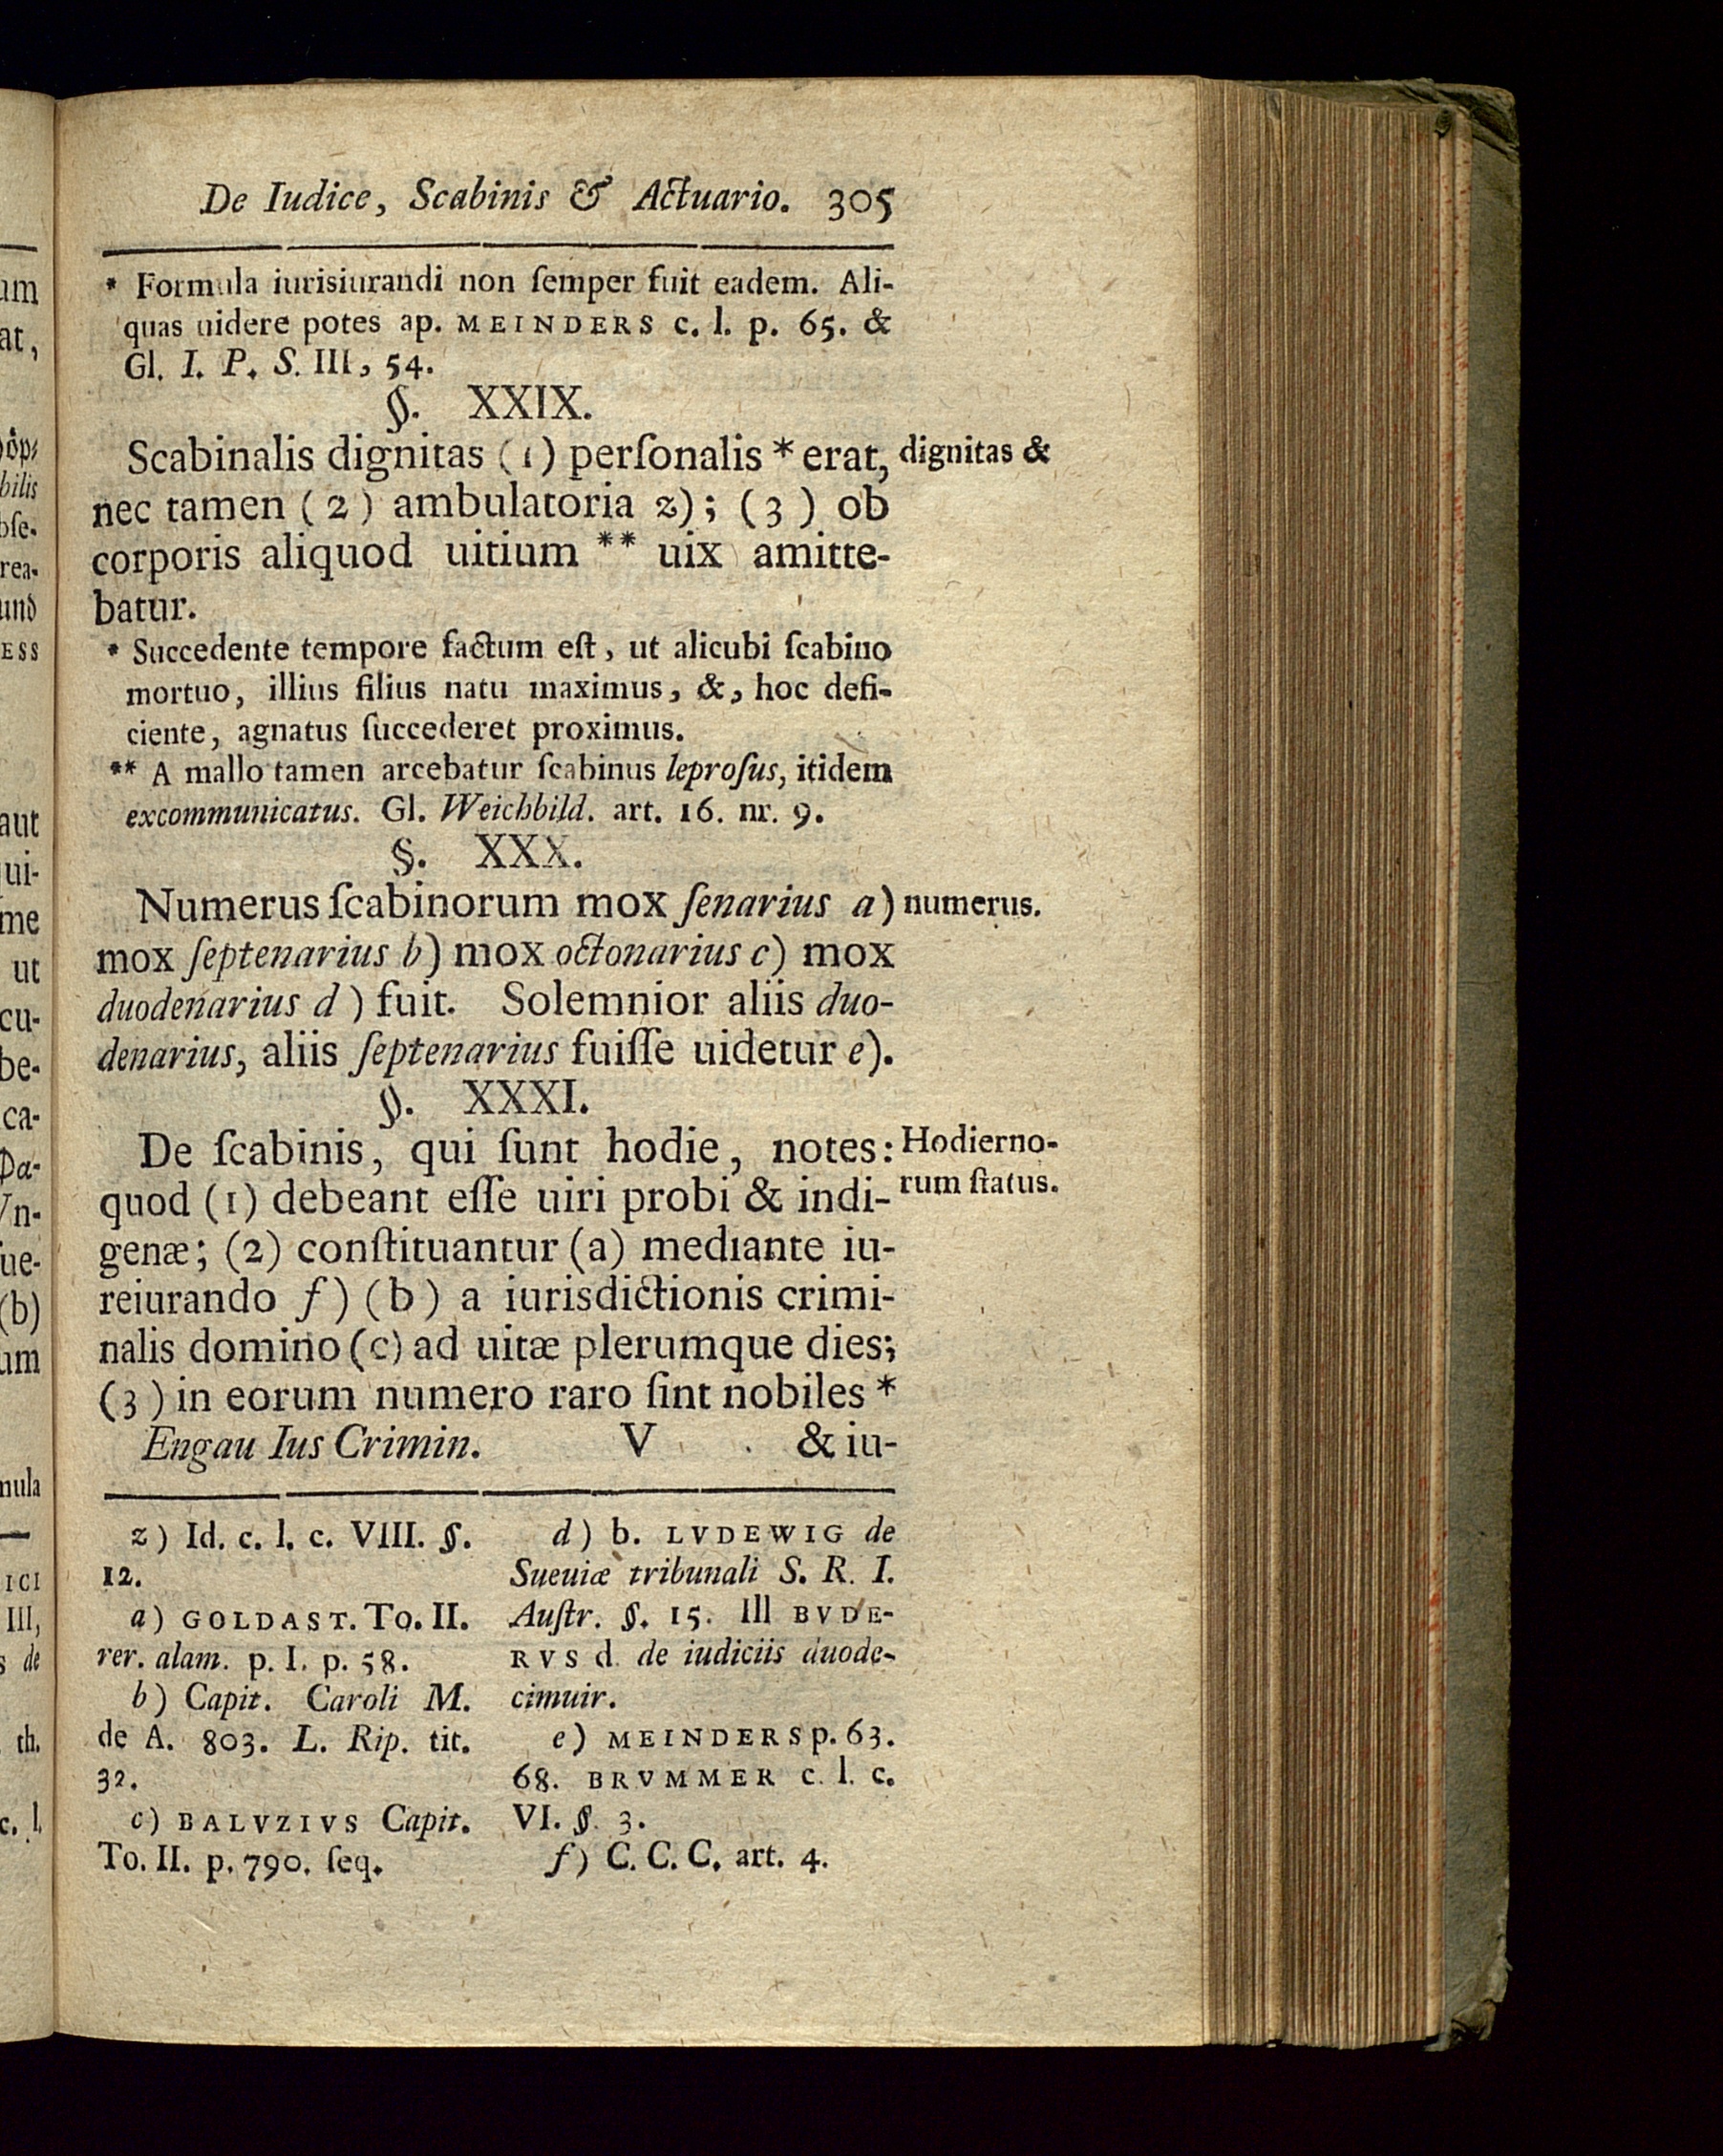 De Iudice, Scabinis & Actuario. 305
* Formula iurisiurandi non ſemper fuit eadem. Ali-
quas uidere potes ap. MEINDERS c. l. p. 65. &
Gl. I. P. S. III, 54.
§. XXIX.
Scabinalis dignitas (1) perſonalis * erat,
dignitas &
nec tamen (2) ambulatoria z); (3) ob
corporis aliquod uitium ** uix amitte-
batur.
* Succedente tempore factum eſt, ut alicubi ſcabino
mortuo, illius filius natu maximus, &, hoc defi-
ciente, agnatus ſuccederet proximus.
** A mallo tamen arcebatur ſcabinus leproſus, itidem
excommunicatus. Gl. Weichbild. art. 16. nr. 9.
§. XXX.
Numerus ſcabinorum mox ſenarius a)
numerus.
mox ſeptenarius b) mox octonarius c) mox
duodenarius d) fuit. Solemnior aliis duo-
denarius, aliis ſeptenarius fuiſſe uidetur e).
§. XXXI.
De ſcabinis, qui ſunt hodie, notes:
Hodierno-
rum ſtatus.
quod (1) debeant eſſe uiri probi & indi-
genæ; (2) conſtituantur (a) mediante iu-
reiurando f) (b) a iurisdictionis crimi-
nalis domino (c) ad uitæ plerumque dies;
(3) in eorum numero raro ſint nobiles *
Engau Ius Crimin. V & iu-
z) Id. c. l. c. VIII. §.
12.
a) GOLDAST. To. II.
rer. alam. p. I. p. 58.
b) Capit. Caroli M.
de A. 803. L. Rip. tit.
32.
c) BALVZIVS Capit.
To. II. p. 790. ſeq.
d) b. LVDEWIG de
Sueuiæ tribunali S. R. I.
Auſtr. §. 15. Ill BVDE-
RVS d. de iudiciis duode-
cimuir.
e) MEINDERS p. 63.
68. BRVMMER c. l. c.
VI. §. 3.
f) C. C. C. art. 4.